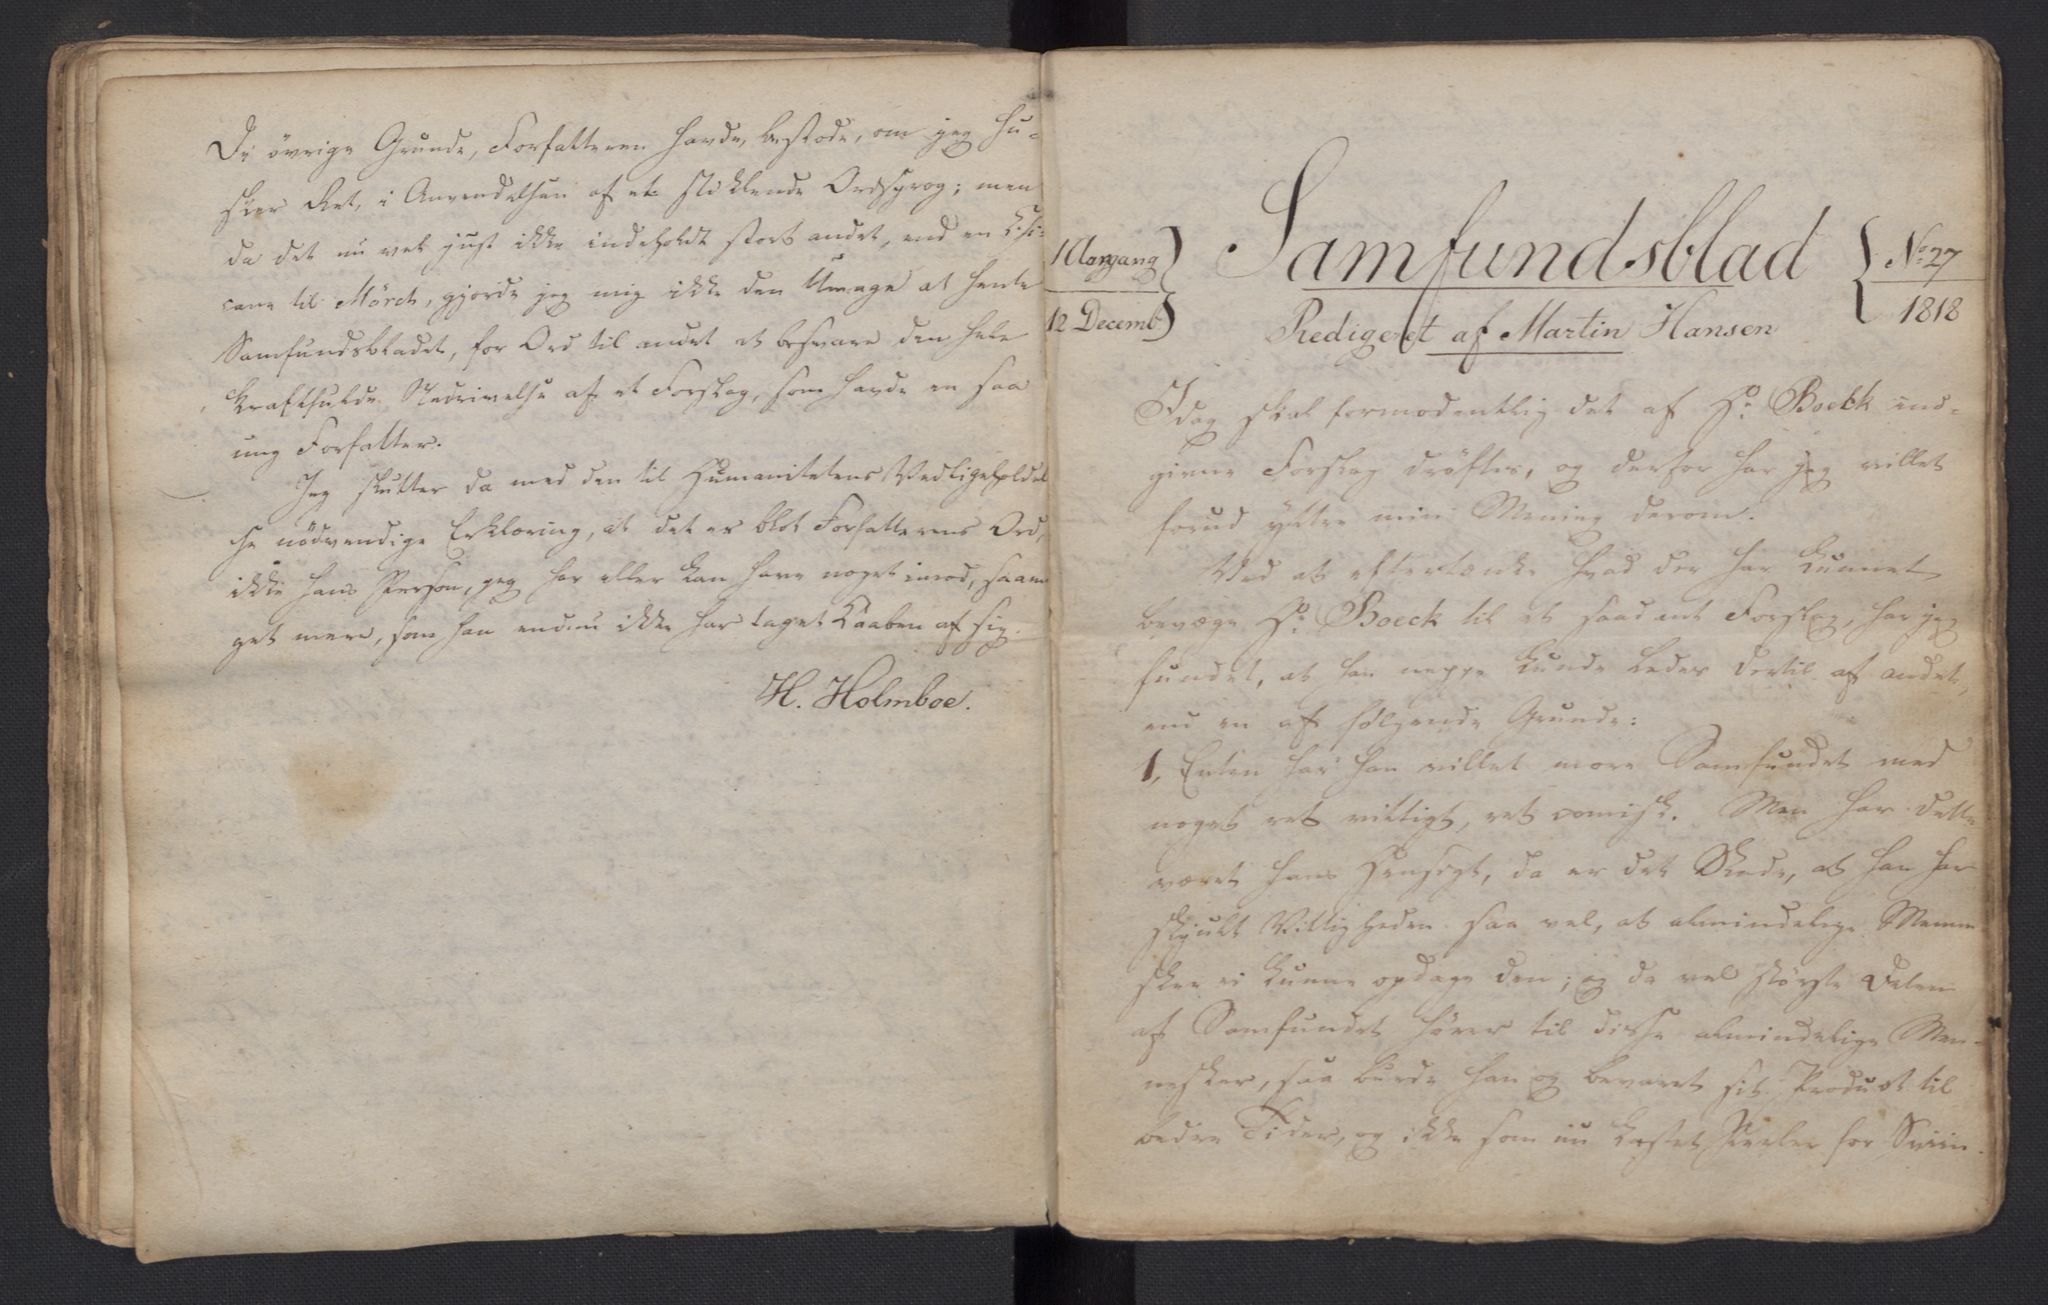 De övrige Grunde, Forfatteren havde, bestode, om jeg hu-
sker Ret, i Anvendelsen af et stiklende Ordsprog; men
da det nu vel just ikke indeholdt stort andet, end en Chi-
cane til Mörch, gjorde jeg mig ikke den Umage at hente
Samfundsbladet, for Ord til andet at besvare den hele
kraftfulde Nedrivelse af et Forslag, som havde en saa
ung Forfatter.
Jeg slutter da med den til Humanitetens Vedligeholdel
se nödvendige Erklæring, at det er blot Forfatterens Ord,
ikke hans Person, jeg har eller kan have noget imod, saame
get mere, som han endnu ikke har taget Kaaben af sig.
H. Holmboe.
1 Aargang
12 Decemb.
Samfundsblad
No 27
1818
Redigeret af Martin Hansen
Idag skal formodentlig det af Hr. Boeck ind-
givne Forslag dröftes, og derfor har jeg villet
forud yttre min Mening derom.
Ved at eftertænke hvad der har kunnet
bevæge Hr. Boeck til et saadant Forslag, har jeg
fundet, at han neppe kunde ledes dertil af andet,
end en af fölgende Grunde:
1, Enten har han villet more Samfundet med
noget ret vittigt, ret comisk. Men har dette
været hans Hensigt, da er det Skade, at han har
skjult Vittigheden saa vel, at almindelige Menne
sker ei kunne opdage den; og da vel störste Delen
af Samfundet hörer til disse almindelige Men-
nesker, saa burde han og bevaret sit Product til
bedre Tider, og ikke som nu kastet Perler for Sviin.